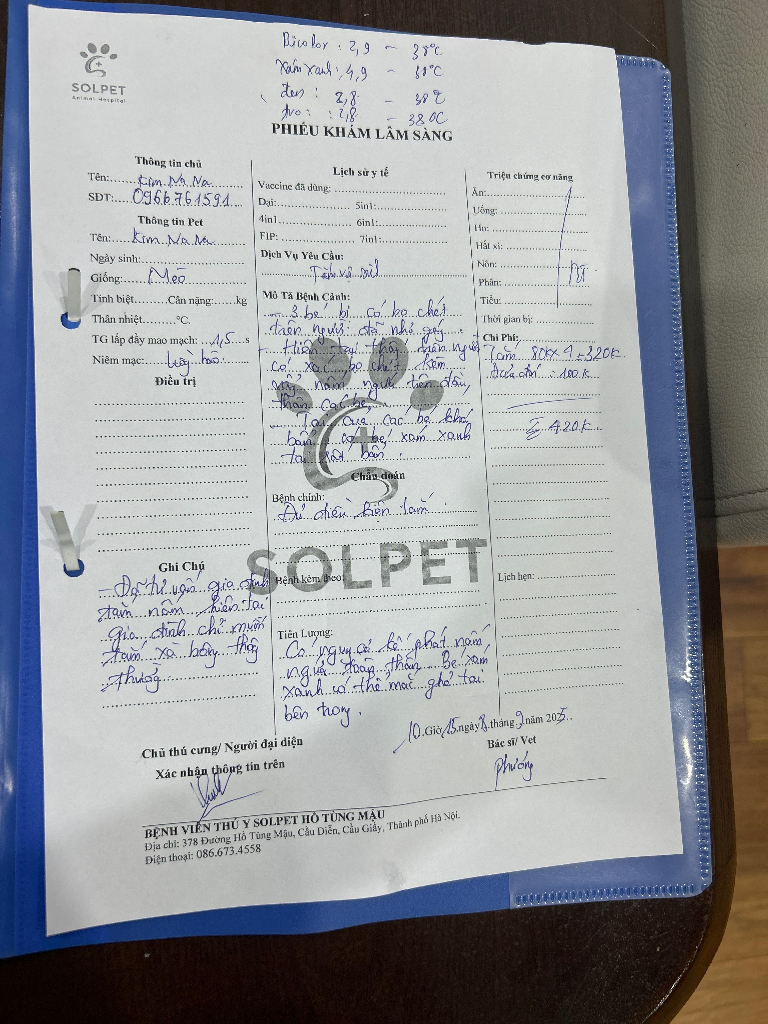 SOLPET
Animal Hospital
Bicolor : 2,9 – 38°C
Xám xanh : 4,9 – 38°C
Đen : 2,8 – 38°C
: 2,8 – 38°C
PHIẾU KHÁM LÂM SÀNG
Thông tin chủ
Tên: Kim Na Na
SĐT: 0966761591
Thông tin Pet
Tên: Kim Na Na
Ngày sinh:
Giống: Mèo
Tính biệt Cân nặng: kg
Thân nhiệt °C.
TG lấp đầy mao mạch: 1,5 s
Niêm mạc: hồng hào
Điều trị
Ghi Chú
- Đã tư vấn gia đình
tắm nấm hiện tại
gia đình chỉ muốn
tắm xà bông thông
thường
Lịch sử y tế
Vaccine đã dùng:
Dại: 5in1:
4in1 6in1:
FIP: 7in1:
Dịch Vụ Yêu Cầu:
Tắm vệ sinh
Mô Tả Bệnh Cảnh:
- 3 bé bị có bọ chét
trên người đã nhỏ gáy.
- Hiện tại thấy trên người
có xác bọ chét kèm
nấm người trên đầu,
thân các bé.
- Tai của các bé khá
bẩn, có bé xám xanh
tai rất bẩn.
Chẩn đoán
Bệnh chính:
Đủ điều kiện tắm.
SOLPET
Bệnh kèm theo:
Tiên Lượng:
Có nguy cơ kế phát nấm
người toàn thân. Bé xám
xanh có thể mắc ghẻ tai
bên trong.
Triệu chứng cơ năng
Ăn:
Uống:
Ho:
Hắt xì:
Nôn:
Phân: BT
Tiểu:
Thời gian bị:
Chi Phí:
Tắm 80K x 4 = 320K
: 100K
Σ 420K
Lịch hẹn:
10 Giờ 15 ngày 8 tháng 9 năm 2025
Chủ thú cưng/ Người đại diện
Xác nhận thông tin trên
Bác sĩ/ Vet
Phương
BỆNH VIỆN THÚ Y SOLPET HỒ TÙNG MẬU
Địa chỉ: 378 Đường Hồ Tùng Mậu, Cầu Diễn, Cầu Giấy, Thành phố Hà Nội.
Điện thoại: 086.673.4558